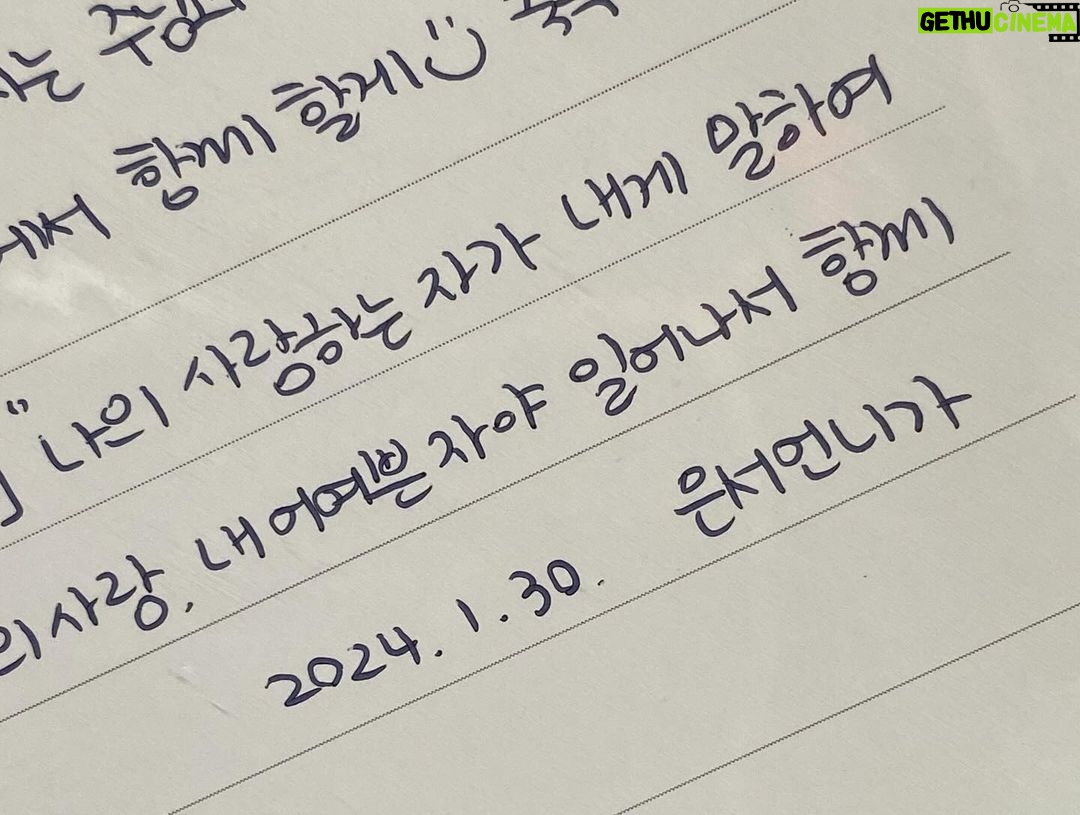 GETHUCINEMA
는
에서 함께 할게
"나의 사랑하는 자가 내게 말하여
의 사랑, 내 어여쁜 자야 일어나서 함께
2024. 1. 30. 은서언니가